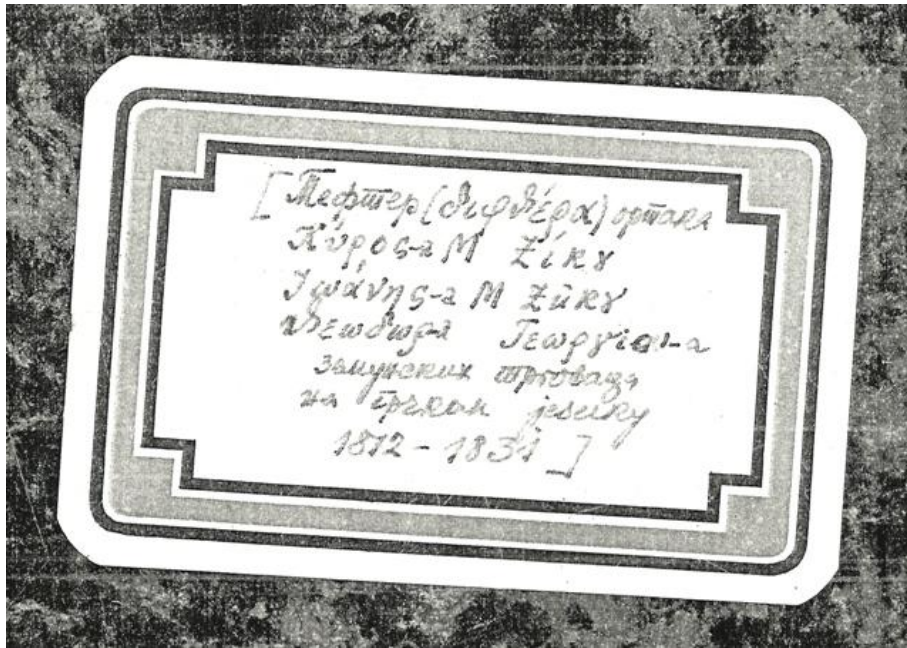 [Тефтер (διφθέρα) ортака
Κύρος-а М Ζίκȣ
Ιωάνης-а М Ζίκȣ
Θεωδωρ-а Γεωργίου-а
земунских трговаца
на грчком језику
1812 - 1831]